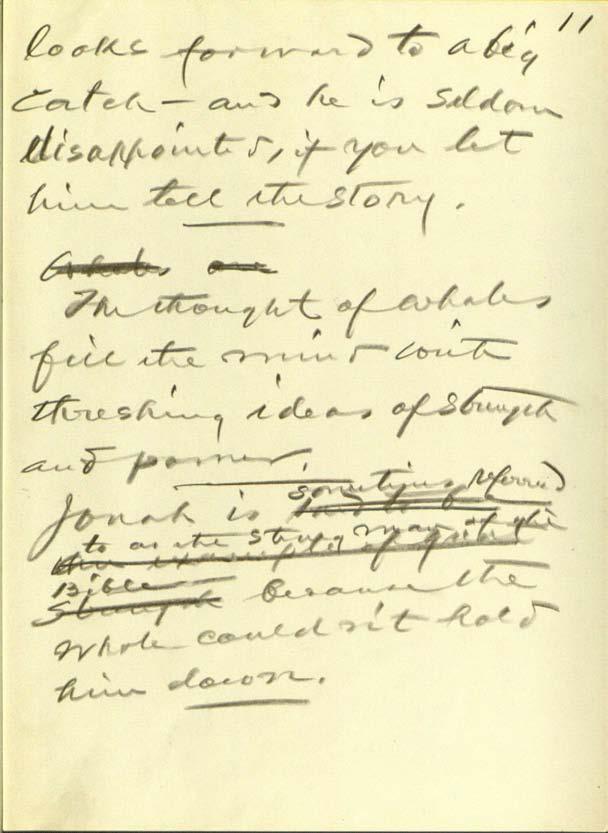 11
looks forward to a big
catch — and he is seldom
disappointed, if you let
him tell the story.
Whales are
The thought of whales
fill the mind with
threshing ideas of strength
and power.
Jonah is sometimes referred
to as the strong man of the
Bible
strength because the
whale could n't hold
him down.